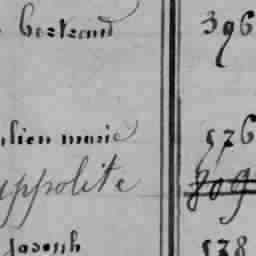 Bertrand 396
ulien marie 526
yppolite 309
Joseph 538